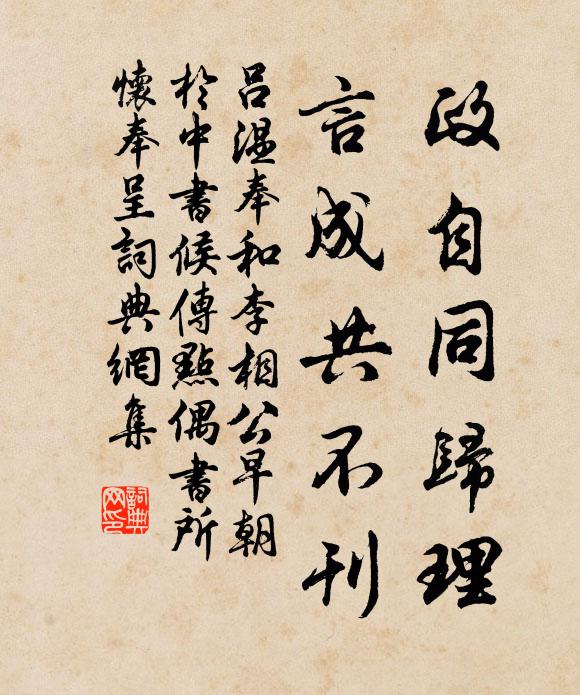 政自同歸理
言成共不刊
呂温奉和李相公早朝
於中書候傳點偶書所
懷奉呈詞典網集
詞典
网印